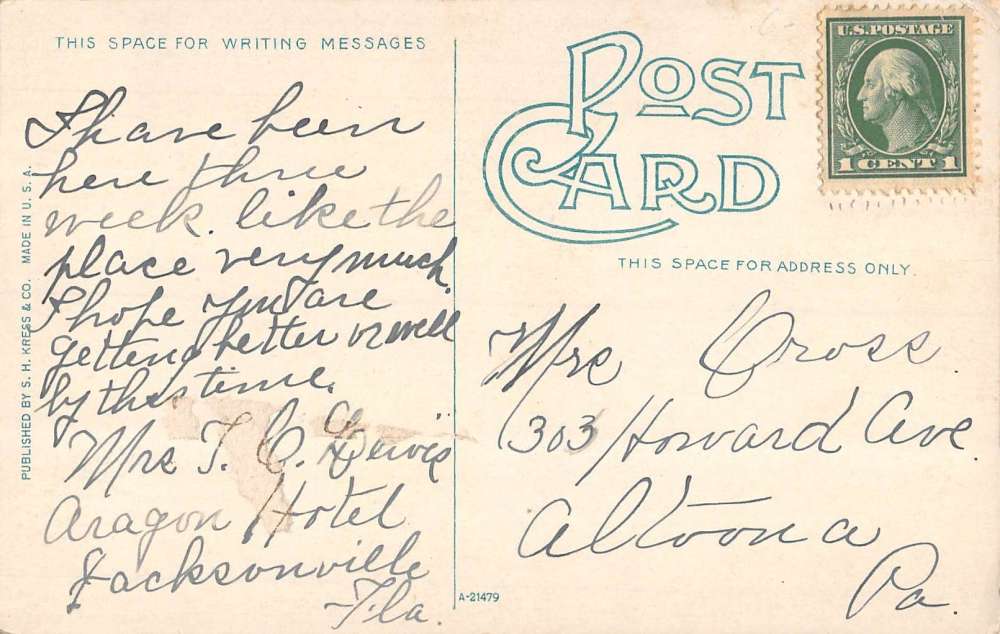 THIS SPACE FOR WRITING MESSAGES
I have been
here three
week. like the
place very much.
I hope you are
getting better or well
by this time.
Mrs T. C. Lewis
Aragon Hotel
Jacksonville
Fla.
PUBLISHED BY S. H. KRESS & CO. MADE IN U. S. A.
A-21479
POST
CARD
U.S. POSTAGE
1 CENT 1
THIS SPACE FOR ADDRESS ONLY.
Mrs Cross
303 Howard Ave.
Altoona
Pa.